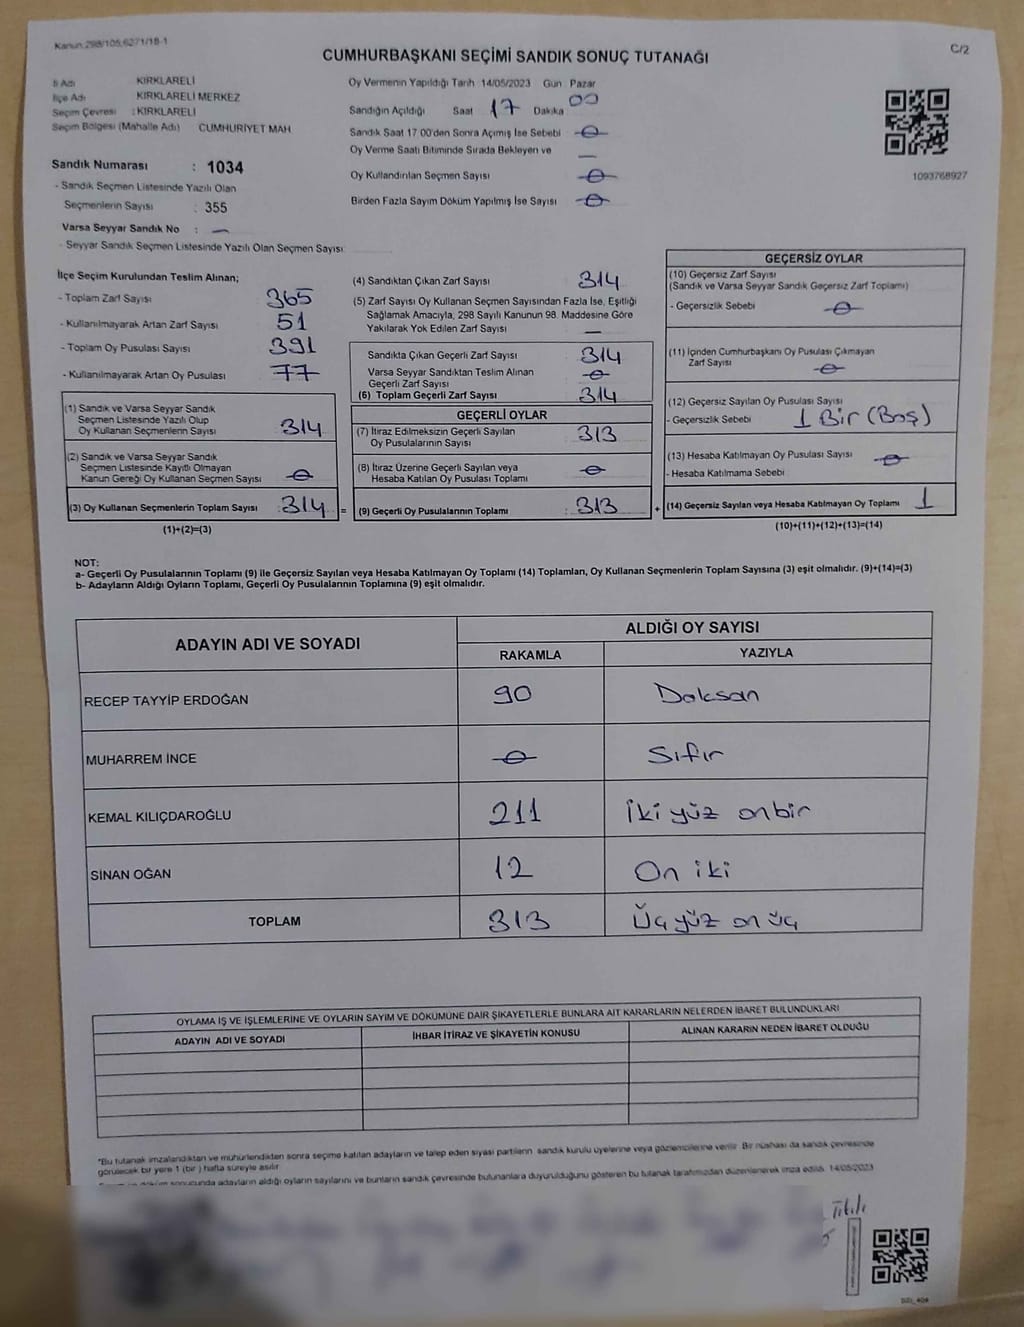 Kanun:298/105,6271/18-1
C/2
CUMHURBAŞKANI SEÇİMİ SANDIK SONUÇ TUTANAĞI
İl Adı KIRKLARELİ
İlçe Adı KIRKLARELİ MERKEZ
Seçim Çevresi : KIRKLARELİ
Seçim Bölgesi (Mahalle Adı) CUMHURİYET MAH
Sandık Numarası : 1034
- Sandık Seçmen Listesinde Yazılı Olan
Seçmenlerin Sayısı : 355
Varsa Seyyar Sandık No : —
- Seyyar Sandık Seçmen Listesinde Yazılı Olan Seçmen Sayısı
Oy Vermenin Yapıldığı Tarih 14/05/2023 Gün Pazar
Sandığın Açıldığı Saat 17 Dakika 00
Sandık Saat 17 00'den Sonra Açımış İse Sebebi 0
Oy Verme Saati Bitiminde Sırada Bekleyen ve —
Oy Kullandırılan Seçmen Sayısı 0
Birden Fazla Sayım Döküm Yapılmış İse Sayısı 0
1093768927
İlçe Seçim Kurulundan Teslim Alınan;
- Toplam Zarf Sayısı 365
- Kullanılmayarak Artan Zarf Sayısı 51
- Toplam Oy Pusulası Sayısı 391
- Kullanılmayarak Artan Oy Pusulası 77
(1) Sandık ve Varsa Seyyar Sandık
Seçmen Listesinde Yazılı Olup
Oy Kullanan Seçmenlerin Sayısı 314
(2) Sandık ve Varsa Seyyar Sandık
Seçmen Listesinde Kayıtlı Olmayan
Kanun Gereği Oy Kullanan Seçmen Sayısı 0
(3) Oy Kullanan Seçmenlerin Toplam Sayısı : 314 =
(1)+(2)=(3)
(4) Sandıktan Çıkan Zarf Sayısı 314
(5) Zarf Sayısı Oy Kullanan Seçmen Sayısından Fazla İse, Eşitliği
Sağlamak Amacıyla, 298 Sayılı Kanunun 98. Maddesine Göre
Yakılarak Yok Edilen Zarf Sayısı —
Sandıkta Çıkan Geçerli Zarf Sayısı 314
Varsa Seyyar Sandıktan Teslim Alınan
Geçerli Zarf Sayısı 0
(6) Toplam Geçerli Zarf Sayısı 314
GEÇERLİ OYLAR
(7) İtiraz Edilmeksizin Geçerli Sayılan
Oy Pusulalarının Sayısı 313
(8) İtiraz Üzerine Geçerli Sayılan veya
Hesaba Katılan Oy Pusulası Toplamı 0
(9) Geçerli Oy Pusulalarının Toplamı : 313 +
GEÇERSİZ OYLAR
(10) Geçersiz Zarf Sayısı
(Sandık ve Varsa Seyyar Sandık Geçersiz Zarf Toplamı)
- Geçersizlik Sebebi 0
(11) İçinden Cumhurbaşkanı Oy Pusulası Çıkmayan
Zarf Sayısı 0
(12) Geçersiz Sayılan Oy Pusulası Sayısı
- Geçersizlik Sebebi 1 Bir (Boş)
(13) Hesaba Katılmayan Oy Pusulası Sayısı 0
- Hesaba Katılmama Sebebi
(14) Geçersiz Sayılan veya Hesaba Katılmayan Oy Toplamı 1
(10)+(11)+(12)+(13)=(14)
NOT:
a- Geçerli Oy Pusulalarının Toplamı (9) ile Geçersiz Sayılan veya Hesaba Katılmayan Oy Toplamı (14) Toplamları, Oy Kullanan Seçmenlerin Toplam Sayısına (3) eşit olmalıdır. (9)+(14)=(3)
b- Adayların Aldığı Oyların Toplamı, Geçerli Oy Pusulalarının Toplamına (9) eşit olmalıdır.
ADAYIN ADI VE SOYADI ALDIĞI OY SAYISI
RAKAMLA YAZIYLA
RECEP TAYYİP ERDOĞAN 90 Doksan
MUHARREM İNCE 0 Sıfır
KEMAL KILIÇDAROĞLU 211 İki yüz onbir
SİNAN OĞAN 12 On iki
TOPLAM 313 Üç yüz on üç
OYLAMA İŞ VE İŞLEMLERİNE VE OYLARIN SAYIM VE DÖKÜMÜNE DAİR ŞİKAYETLERLE BUNLARA AİT KARARLARIN NELERDEN İBARET BULUNDUKLARI
ADAYIN ADI VE SOYADI İHBAR İTİRAZ VE ŞİKAYETİN KONUSU ALINAN KARARIN NEDEN İBARET OLDUĞU
*Bu tutanak imzalandıktan ve mühürlendikten sonra seçime katılan adayların ve talep eden siyasi partilerin sandık kurulu üyelerine veya gözlemcilerine verilir. Bir nüshası da sandık çevresinde
görülecek bir yere 1 (bir) hafta süreyle asılır.
sonucunda adayların aldığı oyların sayılarını ve bunların sandık çevresinde bulunanlara duyurulduğunu gösteren bu tutanak tarafımızdan düzenlenerek imza edildi. 14/05/2023